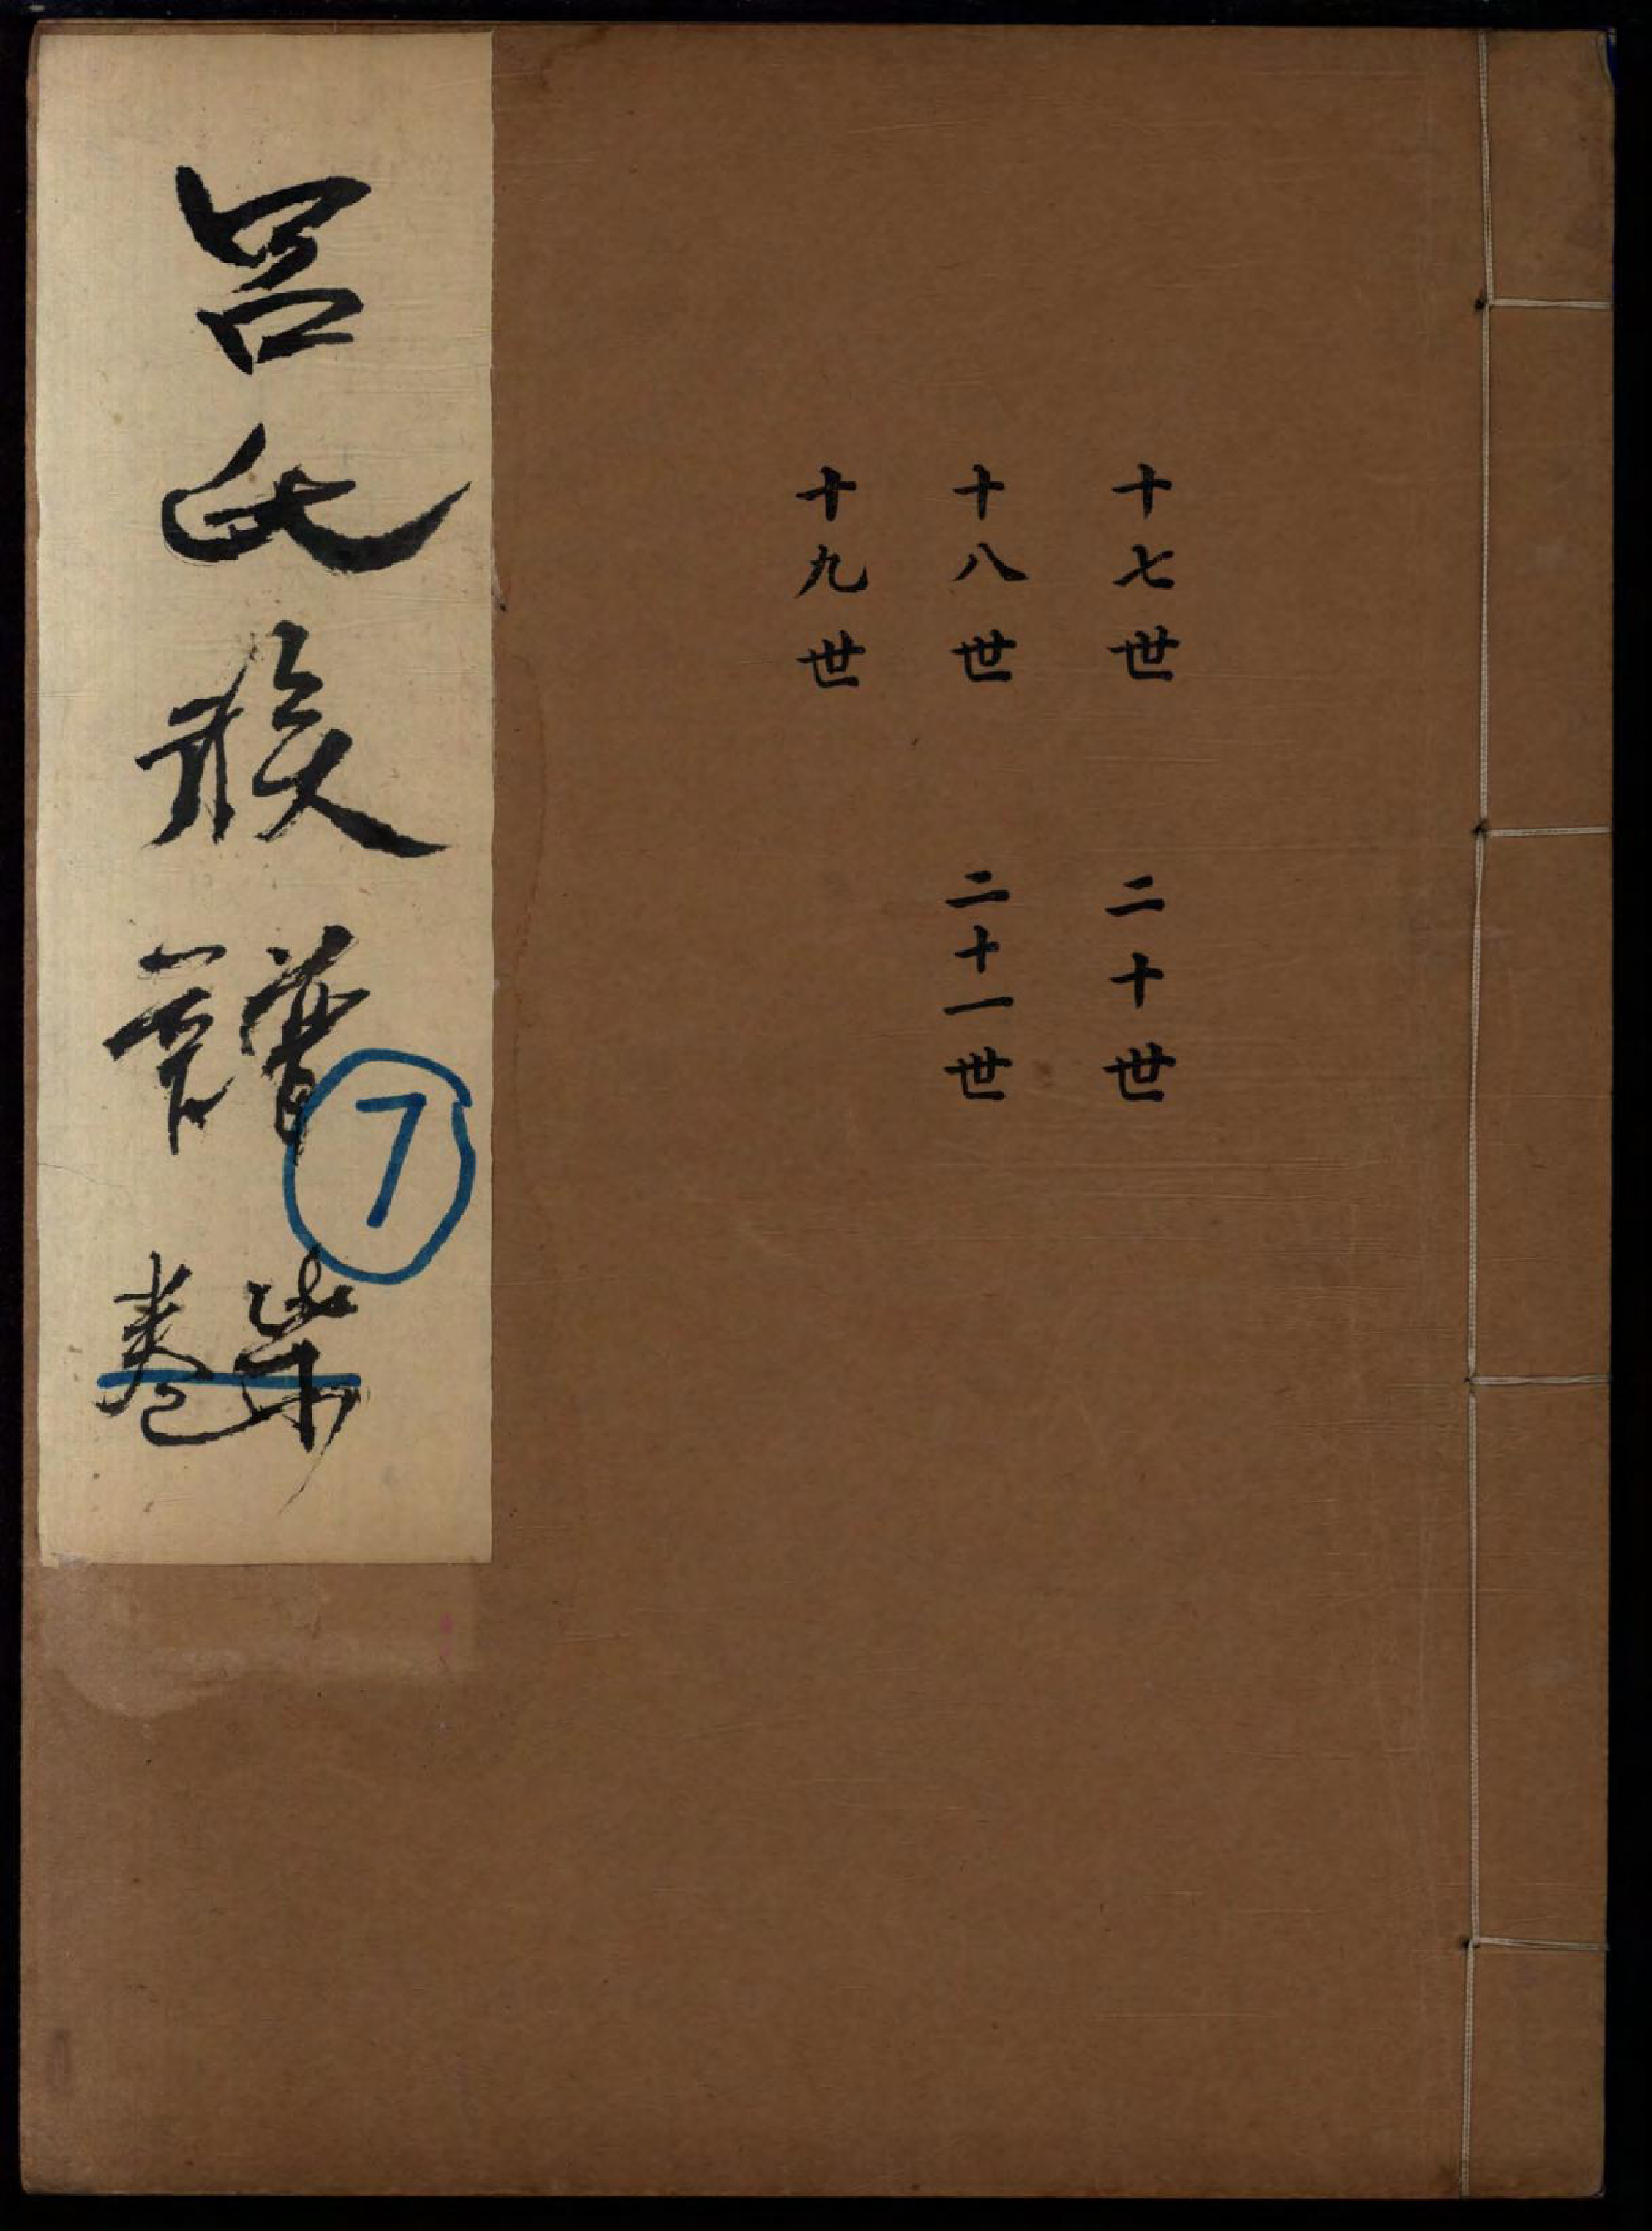 十七世
十八世
十九世
二十世
二十一世
呂氏族譜
柒卷
7